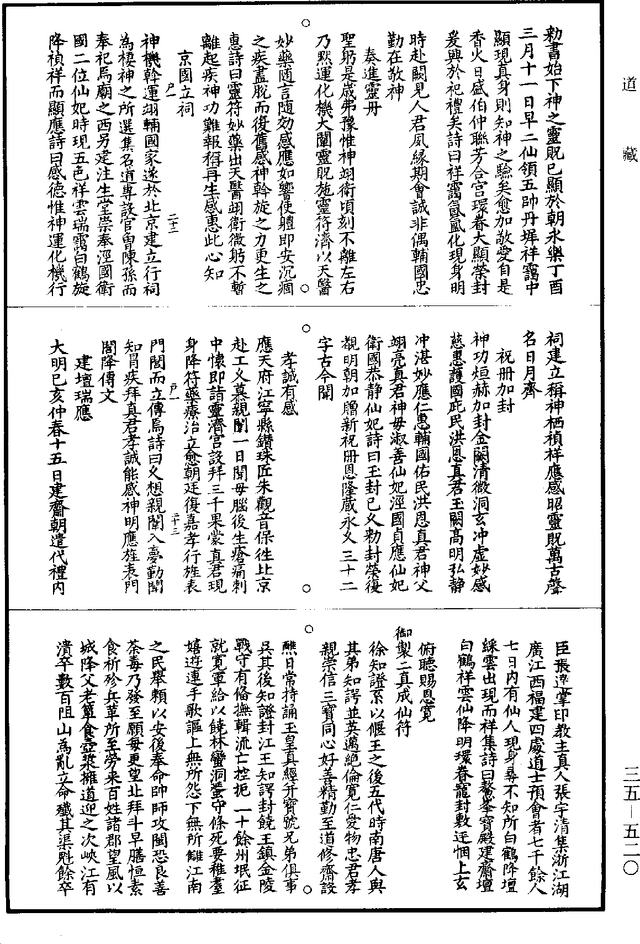 道藏
勑書始下神之靈貺已顯於朝永樂丁酉
三月十一日早二仙領五帥丹墀祥靄中
顯現真身則知神之驗矣愈加敬愛自是
香火日盛伯仲聯芳合宮環眷大顯榮封
爰興於祀禮矣詩曰祥靄氤氳化現身明
時赴闕見人君夙緣期會誠非偶輔國忠
勤在敬神
奏進靈丹
聖躬是歲弗豫惟神翊衛頃刻不離左右
乃默運化機大闡靈貺施靈符濟以天醫
妙藥隨言隨効感應如響使體即安沉痼
之疾盡脫而復舊感神斡旋之力更生之
惠詩曰靈符妙藥出天醫翊衛微躬不暫
離起疾神功難報稱再生感惠此心知
京國立祠
尸一
二十二
神機斡運翊輔國家遂於北京建立行祠
為棲神之所選集名道專設官曾陳孫而
奉祀焉廟之西另建注生堂崇奉涇國衛
國二位仙妃時現五色祥雲瑞靄白鶴旋
降禎祥而顯應詩曰感德惟神運化機行
祠建立稱神栖禎祥應感昭靈貺萬古聲
名日月齊
祝冊加封
神功烜赫加封金闕清微洞玄冲虛妙感
慈惠護國庇民洪恩真君玉闕高明弘靜
冲湛妙應仁惠輔國佑民洪恩真君神父
翊亮真君神母淑善仙妃涇國貞應仙妃
衛國恭靜仙妃詩曰王封已久勑封榮復
覩明朝加贈新祝冊恩隆葳永久三十二
字古今聞
孝誠有感
應天府江寧縣鑽珠匠朱觀音保徃北京
赴工久慕親闈一日聞母腦後生瘡痛刺
中懷即詣靈濟宮設拜三千果蒙真君現
身降符藥療治立愈朝廷復嘉孝行旌表
尸一
二十三
門閭而立傳焉詩曰久想親闈入夢勤聞
知胃疾拜真君孝誠能感神明應旌表門
閭降傳文
建壇瑞應
大明己亥仲春十五日建齋朝遣代禮內
臣張達掌印教主真人張宇清集浙江湖
廣江西福建四處道士預會者七千餘人
七日內有仙人現身尋不知所白鶴降壇
綵雲出現而祥集詩曰鰲峯寶殿建齋壇
白鶴祥雲仙降明環眷寵封敷迓悃上玄
俯聽賜恩寬
御製二真成仙符
徐知證系以偃王之後五代時南唐人與
其弟知諤並英邁絕倫寬仁愛物忠君孝
親崇信三寶同心好善精勤至道修齋設
醮日常持誦玉皇真經并寶號兄弟俱事
吳其後知證封江王知諤封饒王鎮金陵
戰守有備撫輯流亡控扼一十餘州坻征
就寬軍給以饒林蠻洞蜑守條死要稚耋
嬉遊連手歌謳上無所怨下無所讎江南
之民舉賴以安後奉命帥師攻閩恐良善
荼毒乃發至願每更望北拜斗早膳恒素
食祈殄兵革所至勞來百姓諸郡望風以
城降父老簞食壺漿擁道迎之次峽江有
潰卒數百阻山為亂立命殲其渠魁餘卒
三五—五二〇